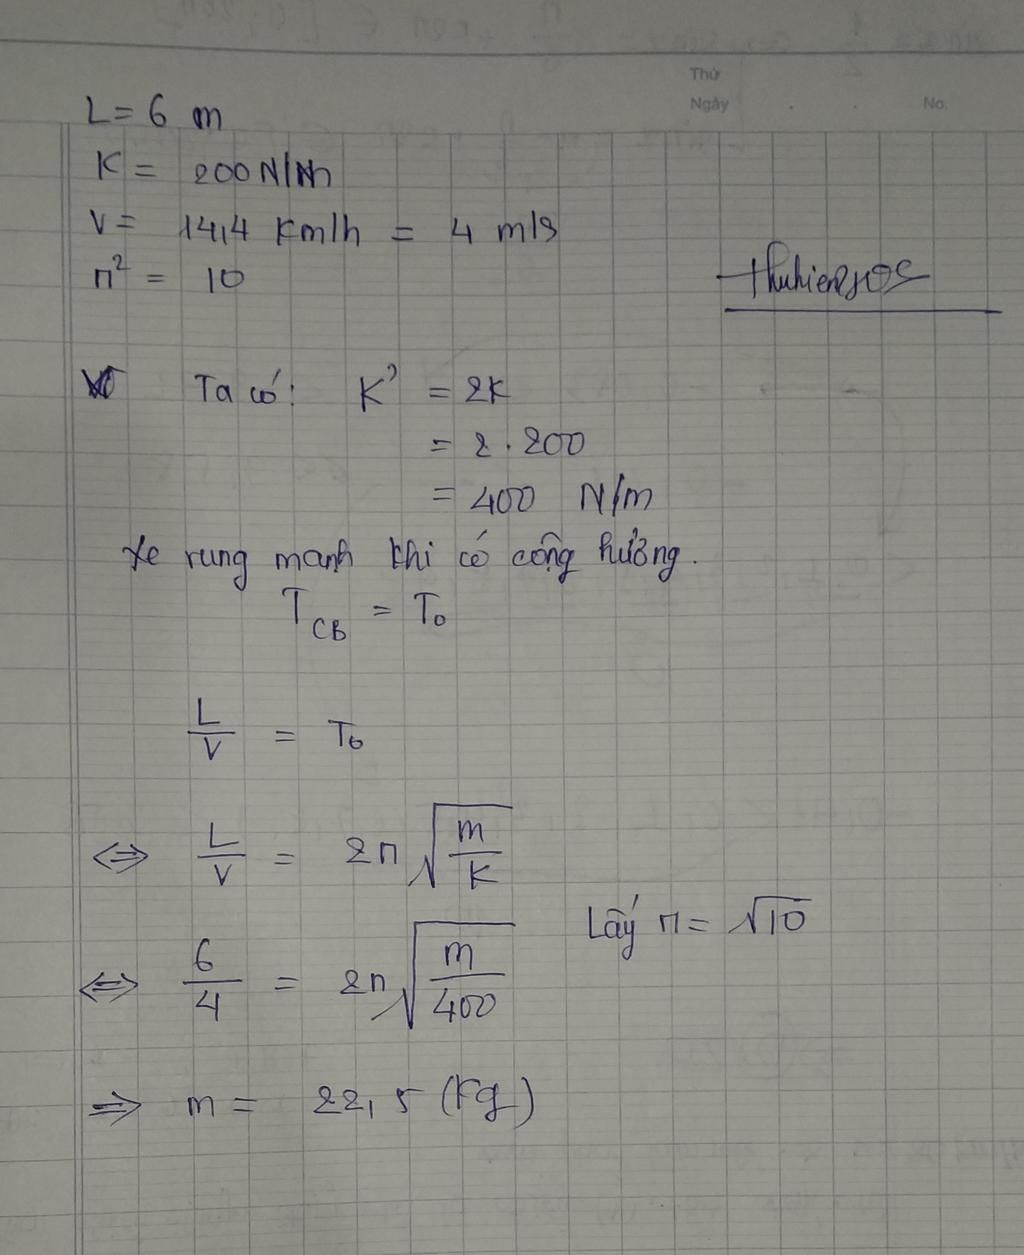 Thứ
Ngày . . No.
L = 6 m
K = 200 N/m
V = 14,4 Km/h = 4 m/s
π² = 10
Ta có: K' = 2K
= 2 . 200
= 400 N/m
Xe rung mạnh khi có cộng hưởng.
T_CB = T₀
L/V = T₀
⇔ L/V = 2π√(m/K)
Lấy π = √10
⇔ 6/4 = 2π√(m/400)
⇒ m = 22,5 (Kg)